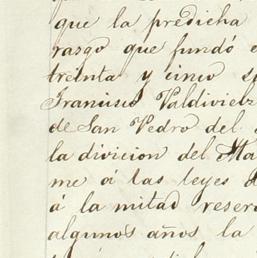 que la predicha
rasgo que fundó e
treinta y cinco s
Francisco Valdiviels
de San Pedro del
la divicion del Ma
me á las leyes d
á la mitad reser
algunos años la